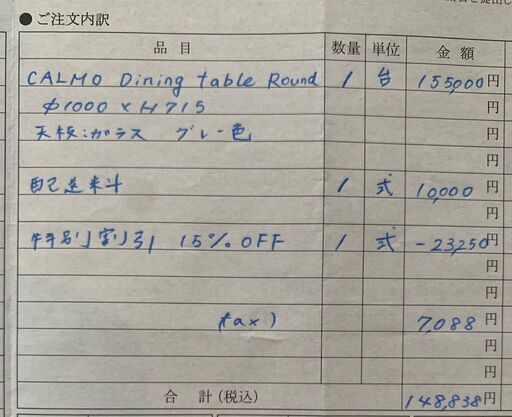 ● ご注文内訳
品目 数量 単位 金額
CALMO Dining table Round 1 台 155,000円
φ1000×H715 円
天板:ガラス グレー色 円
円
配送料 1 式 10,000円
円
特別割引 15% OFF 1 式 -23,250円
円
円
tax) 7,088円
円
円
合計(税込) 148,838円